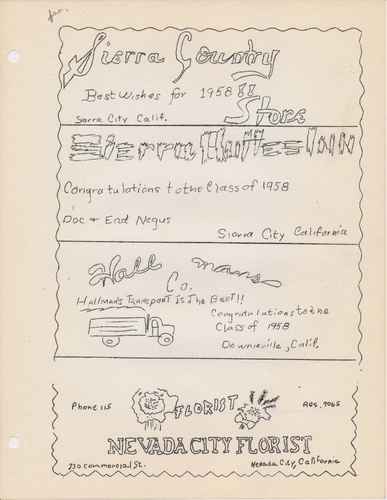 Jan.
Sierra Country
Best Wishes for 1958
Store
Sierra City Calif.
Sierra Buttes Inn
Congratulations to the Class of 1958
Doc + Ead Negus
Sierra City California
Hallmans
Co.
Hallman's Transport Is The Best!!
Congratulations to the
Class of 1958
Downieville, Calif.
Phone 115
FLORIST
Res. 7065
NEVADA CITY FLORIST
230 Commercial St.
Nevada City, California